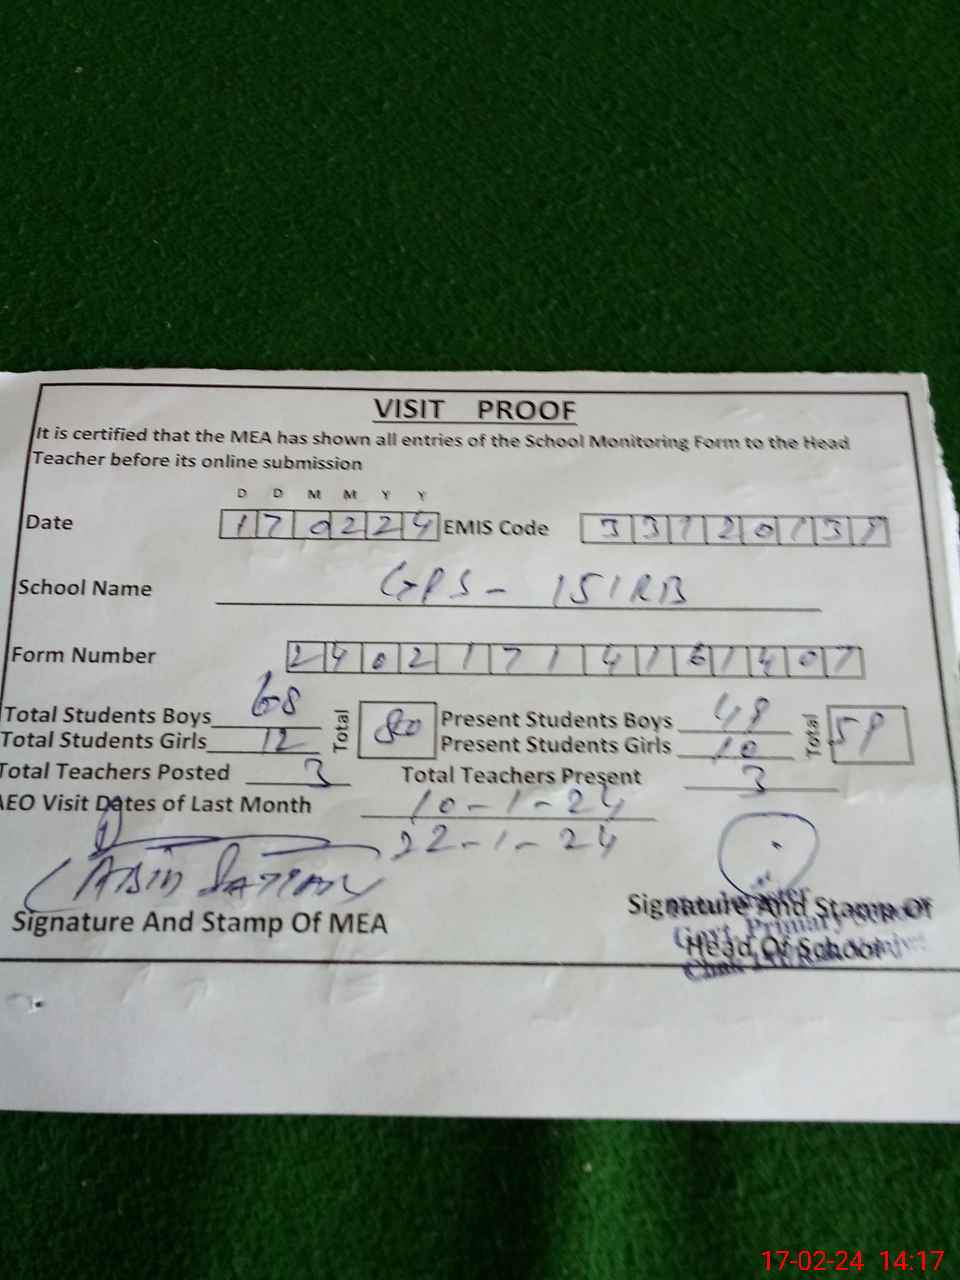 VISIT PROOF
It is certified that the MEA has shown all entries of the School Monitoring Form to the Head
Teacher before its online submission
D D M M Y Y
Date 170224 EMIS Code 3312013
School Name GPS - 151RB
Form Number 24021714161407
Total Students Boys 68 Total 80 Present Students Boys 48 Total 58
Total Students Girls 12 Present Students Girls 10
Total Teachers Posted 3 Total Teachers Present 3
AEO Visit Dates of Last Month 10-1-24
22-1-24
Signature And Stamp Of MEA
Signature And Stamp Of
Head Of School
Govt. Primary
17-02-24 14:17